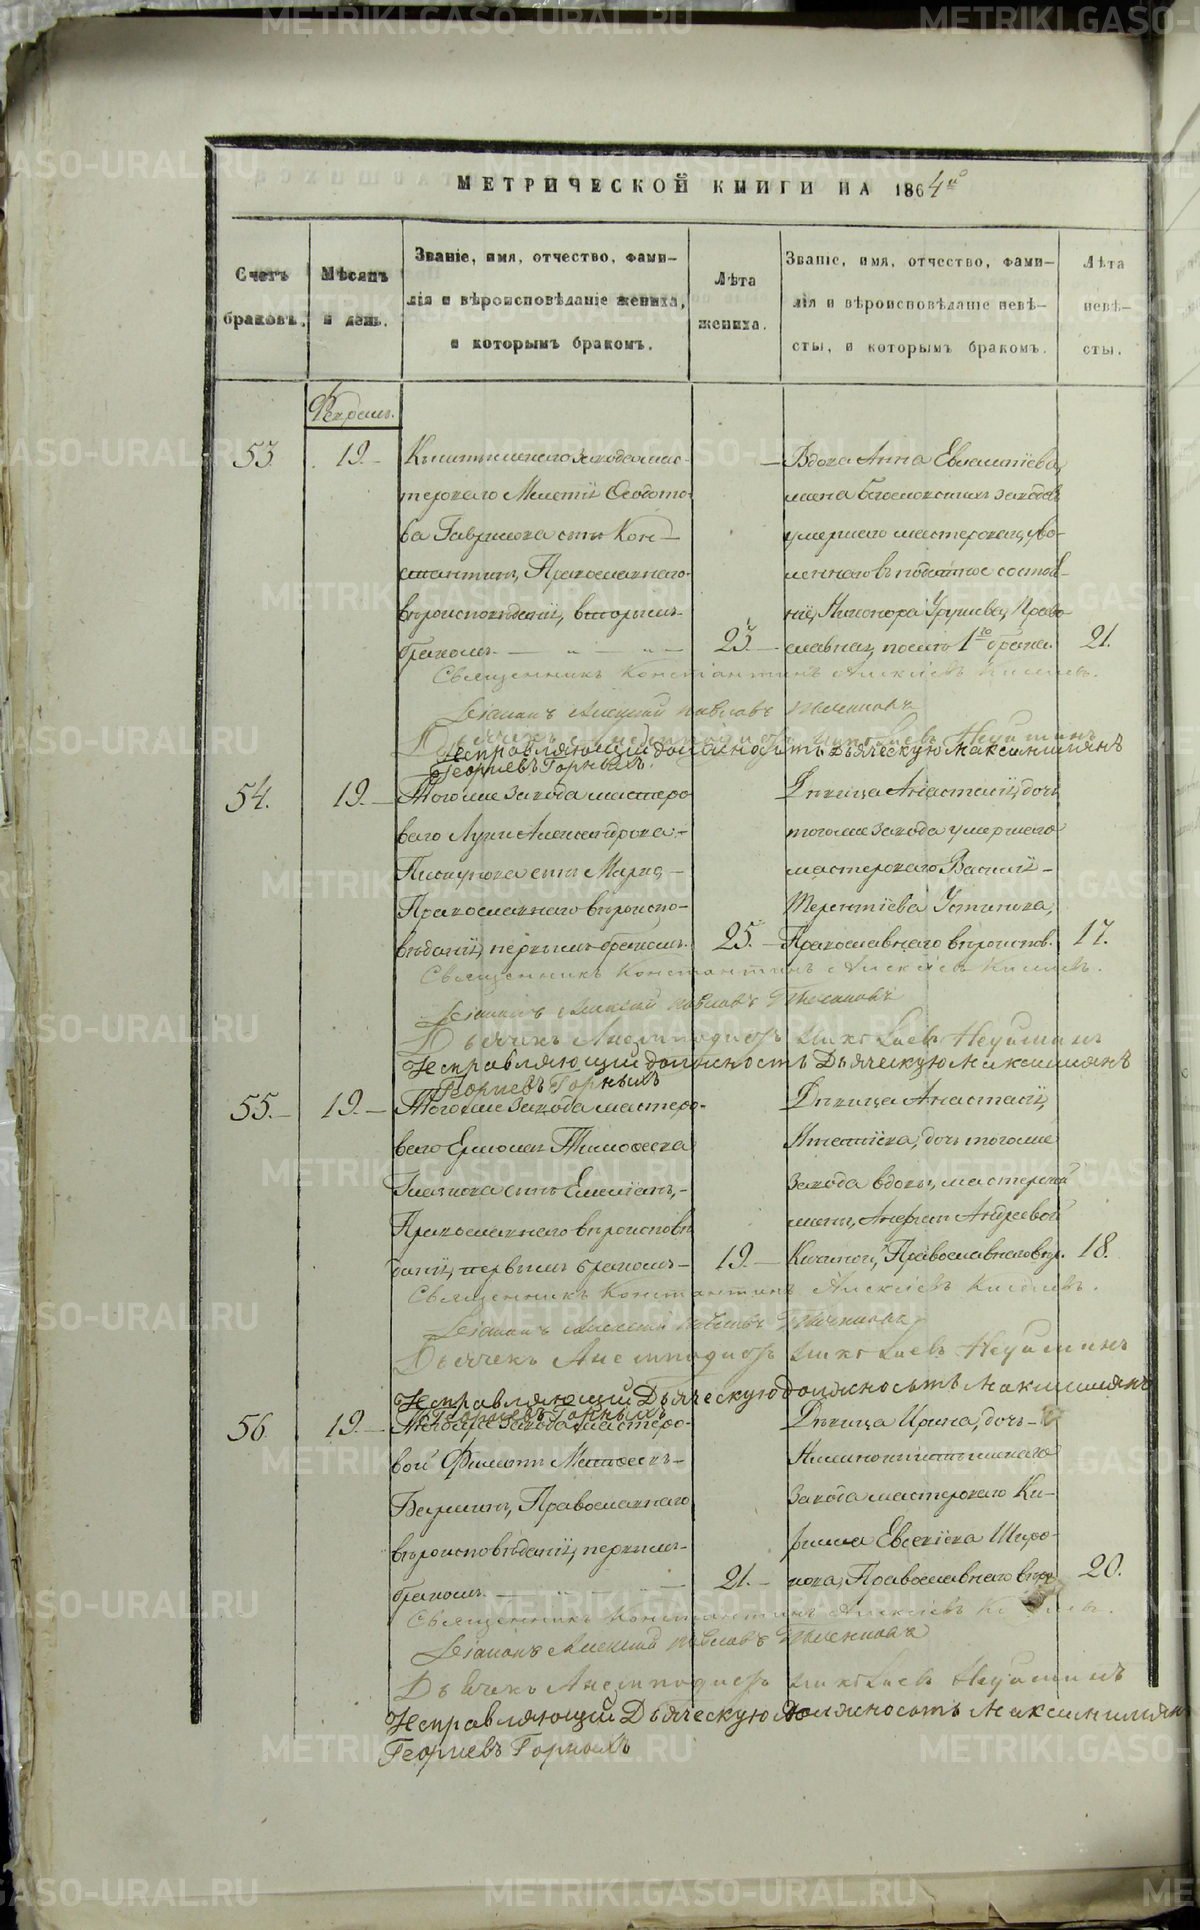 МЕТРИЧЕСКОЙ КНИГИ НА 1864й
Счетъ браковъ.
Мѣсяцъ и день.
Званіе, имя, отчество, фами-
лія и вѣроисповѣданіе жениха,
и которымъ бракомъ.
Лѣта жениха.
Званіе, имя, отчество, фами-
лія и вѣроисповѣданіе невѣ-
сты, и которымъ бракомъ.
Лѣта невѣ-
сты.
Февраль.
53. 19.
Кыштымскаго завода мас-
тероваго
ва Гаврилова сынъ Кон-
стантинъ, Православнаго
вѣроисповѣданія, вторымъ
бракомъ.
23.
Вдова Анна
жена Богословскихъ заводовъ
умершаго мастероваго, уво-
леннаго въ податное состоя-
ніе, Никонора Православ-
славная, послѣ 1го брака.
21.
Священникъ Константинъ Алексѣевъ
Діаконъ Алексій Павловъ
Дьячекъ Николаевъ Неуйминъ
Исправляющій должность Дьяческую Максимиліанъ
Георгіевъ Горныхъ.
54. 19.
Тогоже завода мастеро
ваго Луки Александрова
Пискунова сынъ Марко,
Православнаго вѣроиспо-
вѣданія, первымъ бракомъ.
25.
Дѣвица Анастасія, дочь
тогоже завода умершаго
мастероваго Василія
Терентіева Устинова,
Православнаго вѣроиспов.
17.
Священникъ Константинъ Алексѣевъ
Діаконъ Алексій Павловъ
Дьячекъ Николаевъ Неуйминъ
Исправляющій должность Дьяческую Максимиліанъ
Георгіевъ Горныхъ
55. 19.
Тогоже завода мастеро-
ваго Ермолая Тимофеева
сынъ Емеліанъ,
Православнаго вѣроисповѣ
данія, первымъ бракомъ
19.
Дѣвица Анастасія,
Игнатіева, дочь тогоже
завода вдовы, мастерской
жены, Андреевой
Православнаго вѣр.
18.
Священникъ Константинъ Алексѣевъ
Діаконъ Алексій Павловъ
Дьячекъ Николаевъ Неуйминъ
Исправляющій Дьяческую должность Максимиліанъ
Георгіевъ Горныхъ
56. 19.
Тогоже завода мастеро-
вой Филиппъ Матвеевъ
Православнаго
вѣроисповѣданія, первымъ
бракомъ.
21.
Дѣвица Ирина, дочь
Нижнокыштымскаго
завода мастероваго Ки-
рилла Евсевіева Широ-
кова, Православнаго вѣро
20.
Священникъ Константинъ Алексѣевъ
Діаконъ Алексій Павловъ
Дьячекъ Николаевъ Неуйминъ
Исправляющій Дьяческую должность Максимиліанъ
Георгіевъ Горныхъ